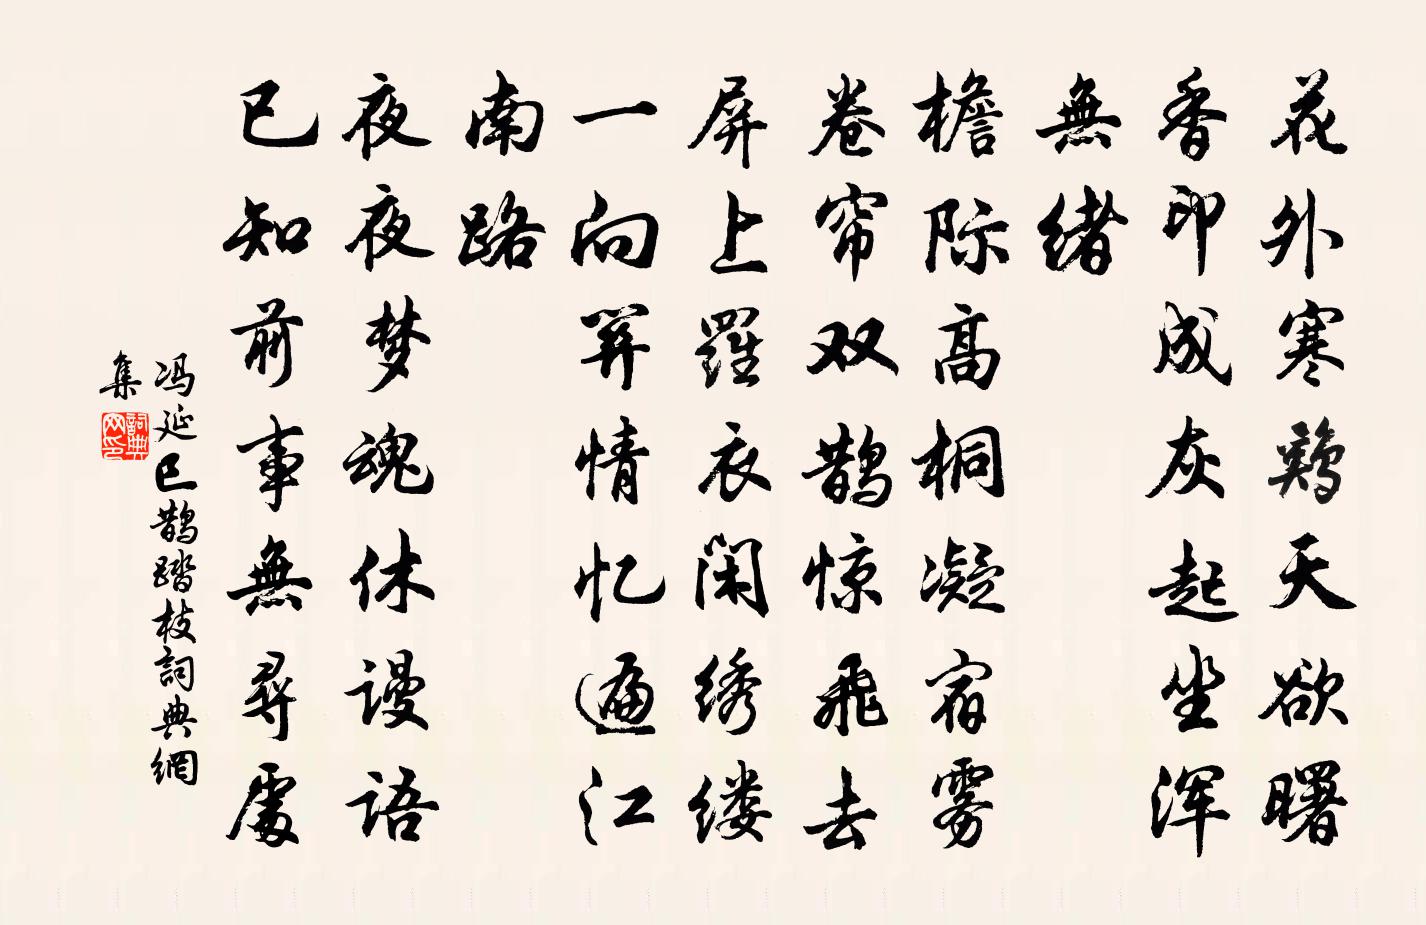 花外寒鷄天欲曙
香印成灰起坐浑
無绪
檐际高桐凝宿雾
卷帘双鹊惊飛去
屏上羅衣闲绣缕
一向関情忆遍江
南路
夜夜梦魂休谩语
已知前事無尋處
冯延巳鹊踏枝詞典網
集
詞典网印